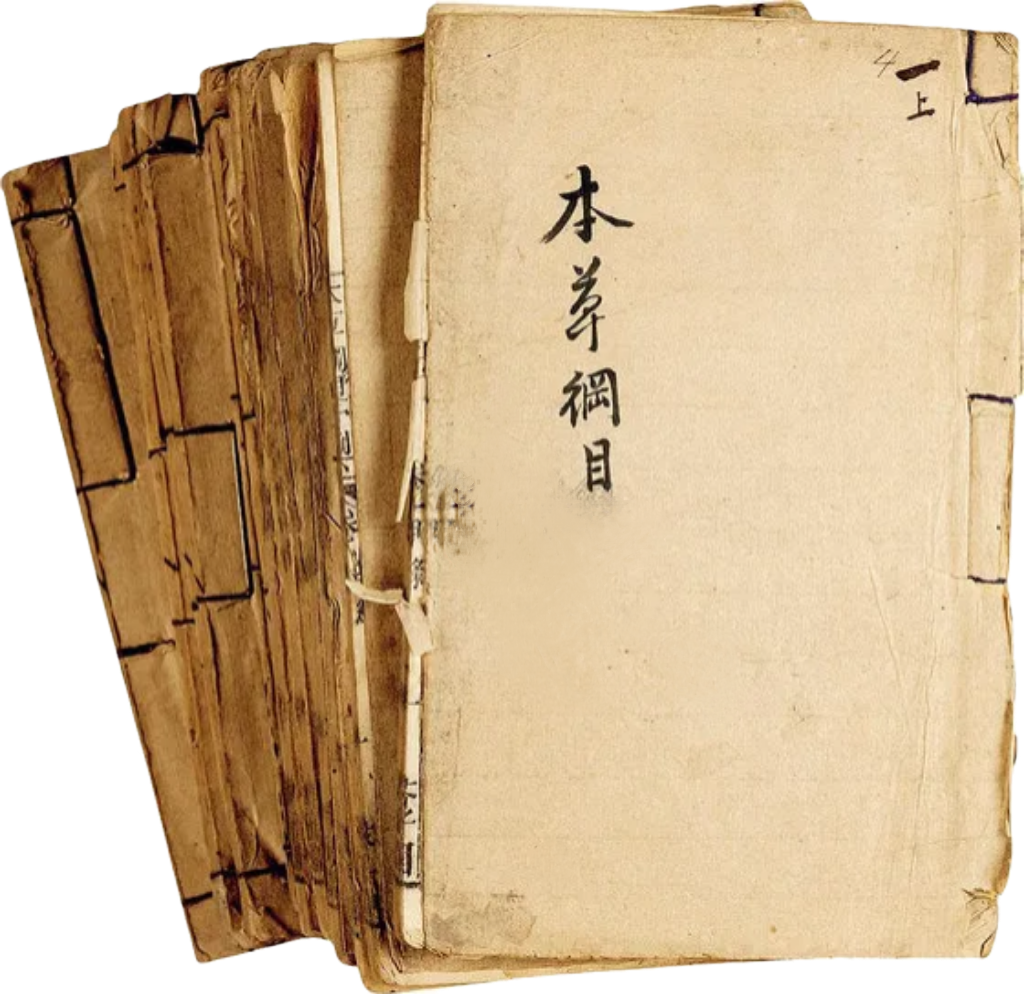 4
一
上
本草綱目